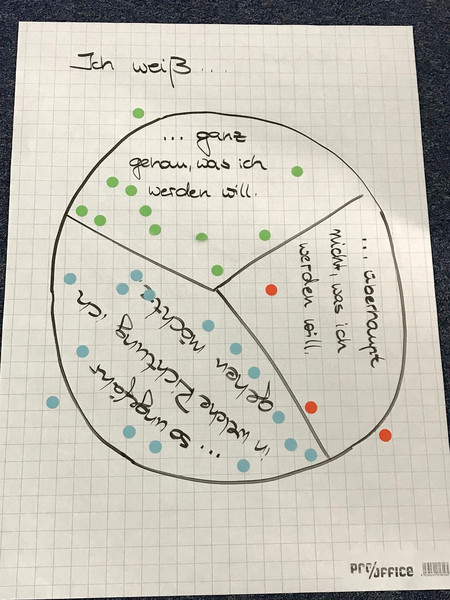 Ich weiß ...
... ganz
genau, was ich
werden will.
... überhaupt
nicht, was ich
werden will.
... so ungefähr
in welche Richtung ich
gehen möchte.
PRO/OFFICE